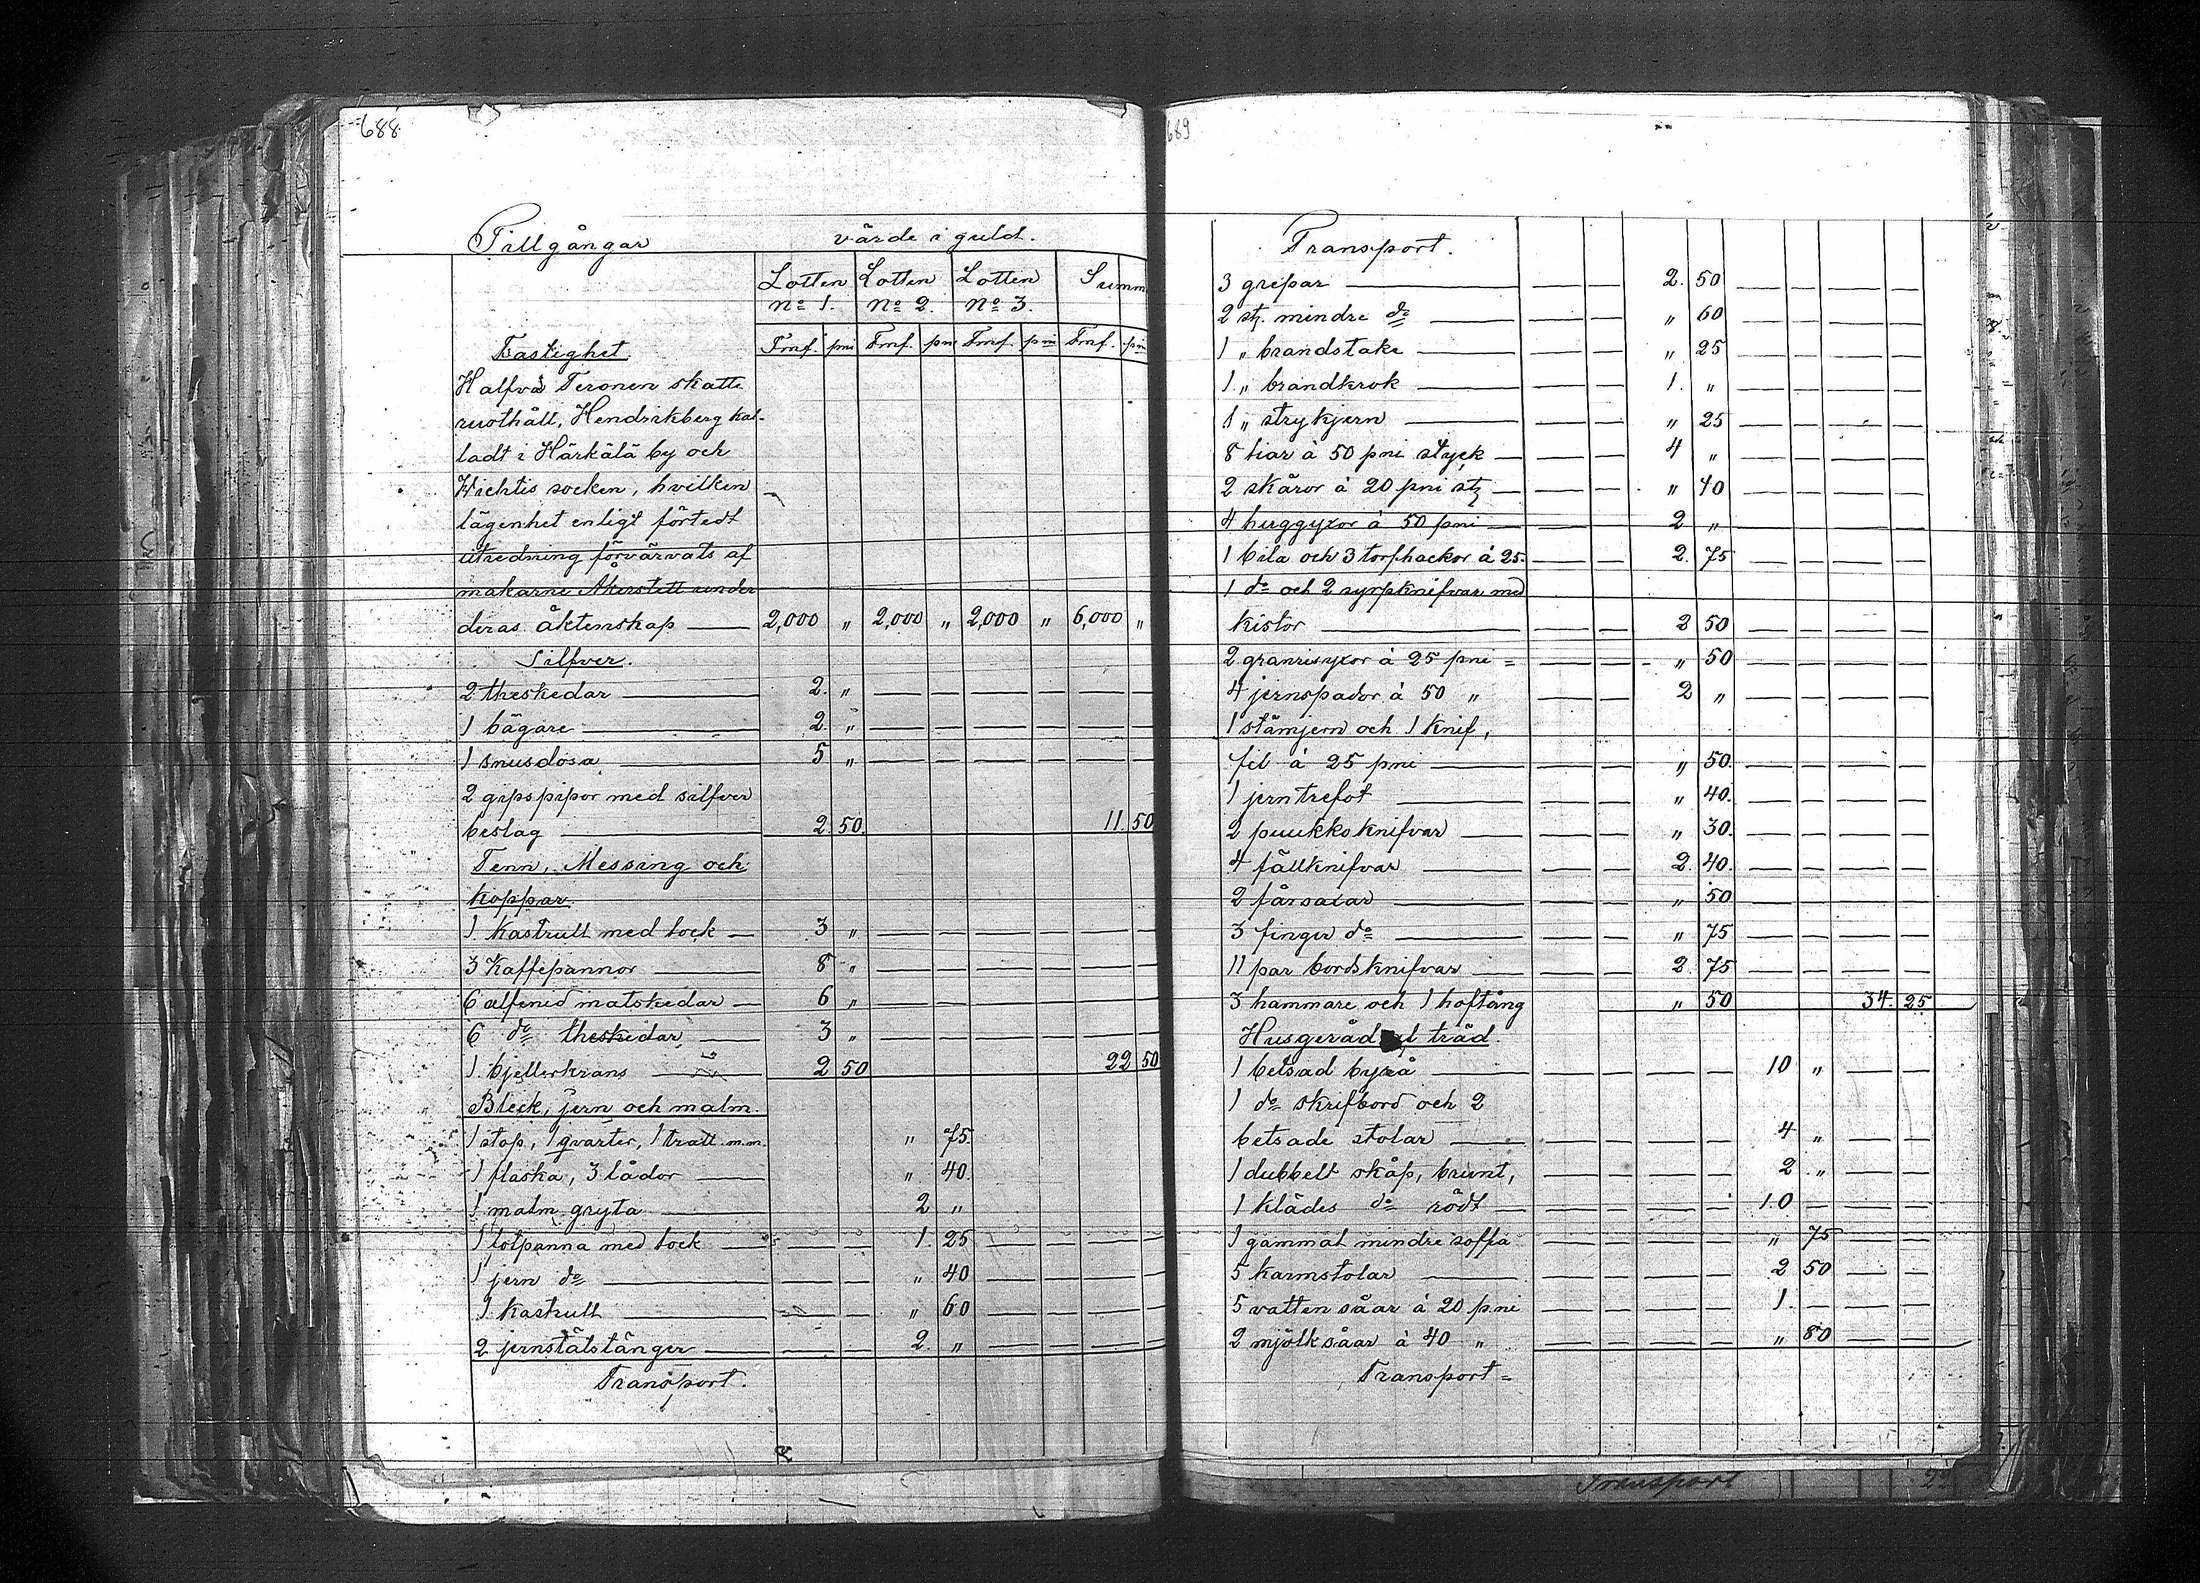 688
Tillgångar värde i guld.
Lotten Lotten Lotten Summ
No 1. No 2. No 3.
Fastighet. Fmf. pni Fmf. pni Fmf. pni Fmf. pni
Halfva Teronen skatte
rusthåll, Hendrikberg kal-
ladt i Härkälä by och
Wichtis socken, hvilken
lägenhet enligt företedt
utredning förvärvats af
makarne Åkerstett under
deras äktenskap — 2,000 " 2,000 " 2,000 " 6,000 "
Silfver.
2 theskedar — 2. "
1 bägare — 2. "
1 snusdosa — 5 "
2 gipspipor med silfver
beslag — 2 50. 11. 50
Tenn, Messing och
Koppar.
1. Kastrull med lock — 3 "
3 Kaffepannor — 8 "
6 alfenid matskedar — 6 "
6 do theskedar — 3 "
1. bjellerkrans — 2 50 22 50
Bleck, jern och malm.
1 stop, 1 qvarter, 1 tratt m.m. " 75.
1 flaska, 3 lådor — " 40.
1 malm gryta — 2 "
1 lotpanna med lock — 1. 25
1 jern do — " 40
1 Kastrull — " 60
2 jernstålstänger — 2. "
Transport
689
Transport.
3 grepar — 2. 50
2 st. mindre do — " 60
1 " brandstake — " 25
1. " brandkrok — 1. "
1 " strykjern — " 25
8 liar à 50 pni styck — 4 "
2 skäror à 20 pni st — " 40
4 huggyxor à 50 pni — 2 "
1 bila och 3 torfhackor à 25. — 2. 75
1 do och 2 syrpknifvar med
kistor — 2 50
2 granrisyxor à 25 pni = " 50
4 jernspador à 50 " — 2 "
1 stämjern och 1 knif,
fil à 25 pni — " 50.
1 jern trefot — " 40.
2 puukko knifvar — " 30.
4 fällknifvar — 2. 40.
2 fårsaxar — " 50
3 finger do — " 75
11 par bordsknifvar — 2. 75
3 hammare och 1 hoftång " 50 34. 25
Husgeråd af träd.
1 betsad byrå — 10 "
1 do skrifbord och 2
betsade stolar — 4 "
1 dubbelt skåp, brunt, — 2 "
1 klädes do rödt — 10
1 gammal mindre soffa " 75
5 karmstolar — 2 50
5 vatten såar à 20 pni — 1.
2 mjölk såar à 40 " — " 80
Transport =
Transport